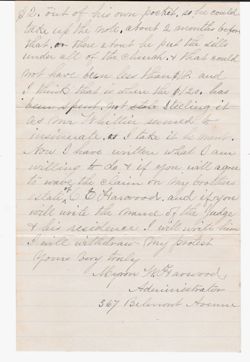 $2. out of his own pocket, so he could
take up the note, about 2 months before
that, or there about he put the sills
under all of the church, & that could
not have been less than $12. and
I think that is where the $120. has
been spent, not stealing it
as Mr Whittier seemed to
insinuate, as I take it he must.
Now I have written what I am
willing to do & if you will agree
to wave the claim on my brothers
estate, C E Harwoods, and if you
will write the name of the Judge
& his residence I will write him
I will withdraw my protest
Yours Very truly
Myron W Harwood,
Administrator
367 Belmont Avenue